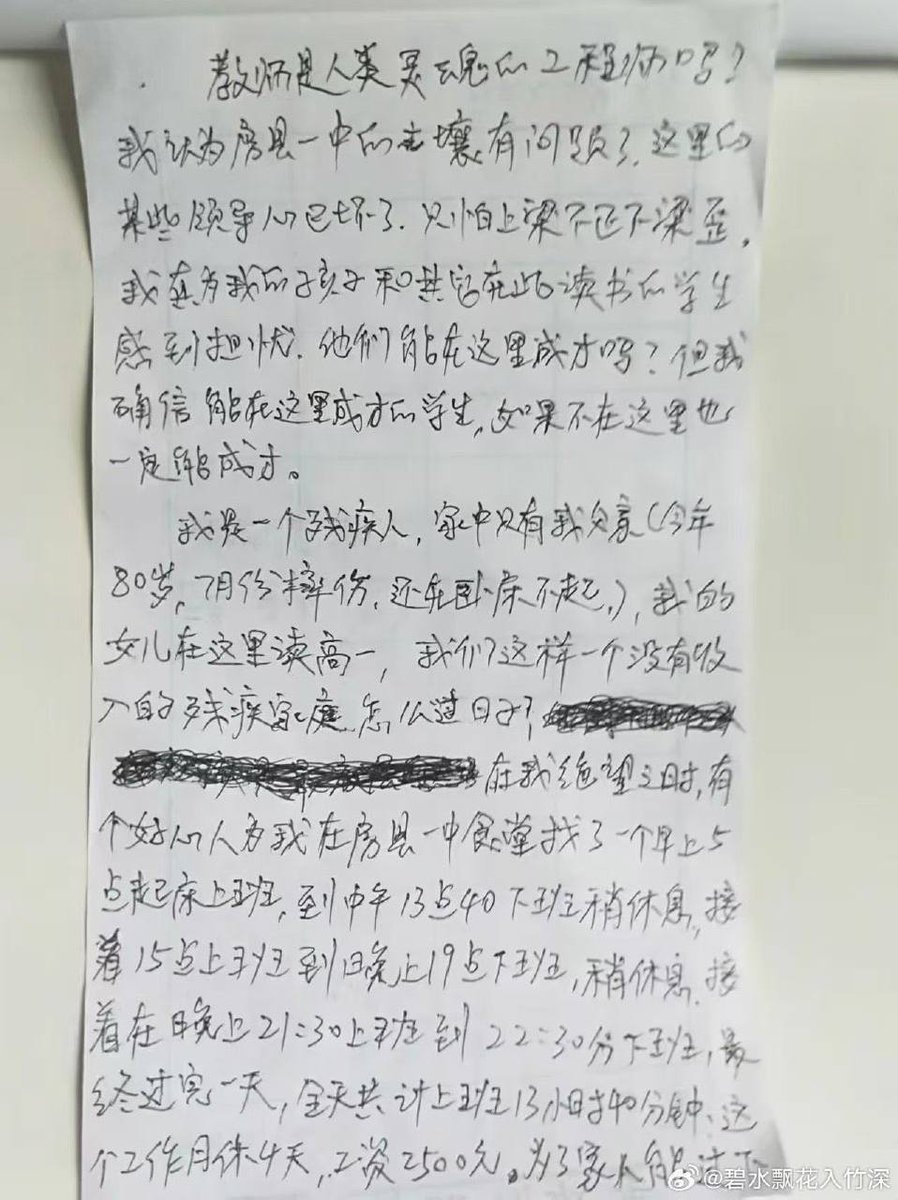 教师是人类灵魂的工程师吗?
我认为房县一中的土壤有问题了,这里的
某些领导心已坏了.只怕上梁不正下梁歪,
我在为我的孩子和其它在此读书的学生
感到担忧.他们能在这里成才吗?但我
确信能在这里成才的学生,如果不在这里也
一定能成才。
我是一个残疾人,家中只有我父亲(今年
80岁,7月份摔伤.还在卧床不起,),我的
女儿在这里读高一,我们这样一个没有收
入的残疾家庭怎么过日子?
在我绝望之时,有
个好心人为我在房县一中食堂找了一个早上5
点起床上班,到中午13点40下班稍休息,接
着15点上班到晚上19点下班,稍休息,接
着在晚上21:30上班到22:30分下班,最
终过完一天,全天共计上班13小时40分钟、这
个工作月休4天,工资2500元。为了家人能过下
@碧水飘花入竹深